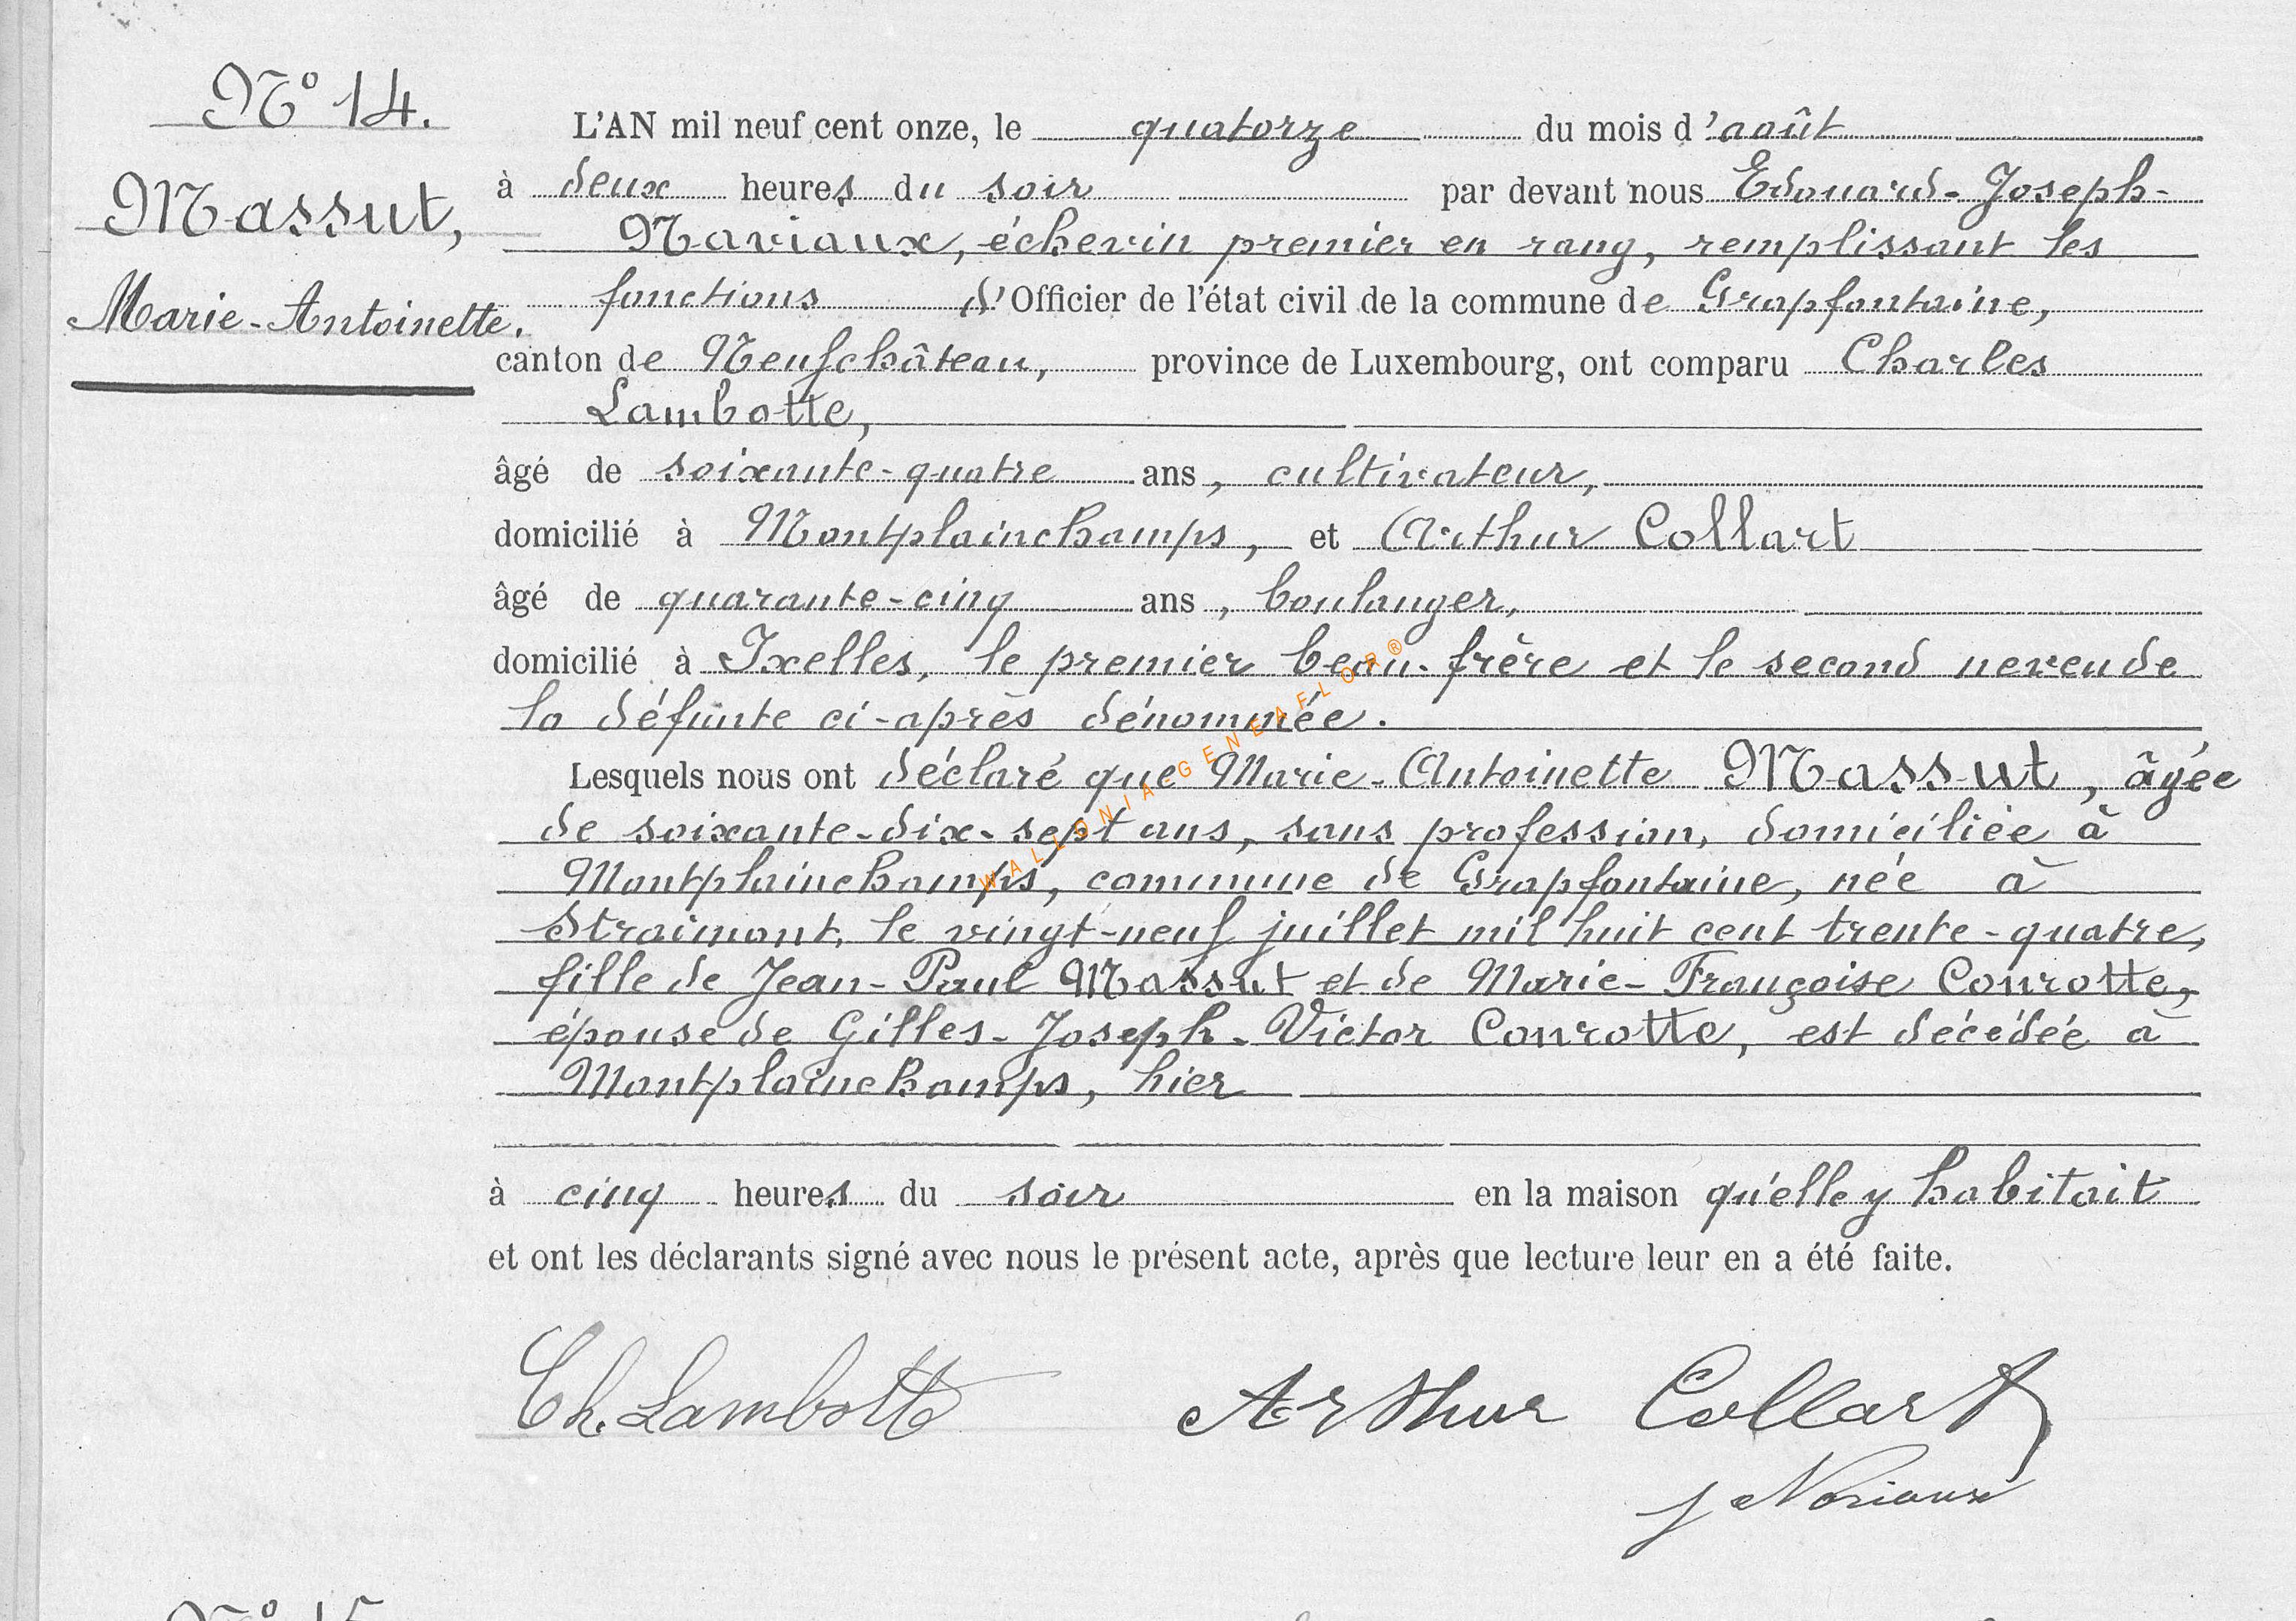 N° 14.
Massut,
Marie-Antoinette.
L'AN mil neuf cent onze, le quatorze du mois d'août
à deux heures du soir par devant nous Edouard-Joseph-
Naviaux, échevin premier en rang, remplissant les
fonctions d'Officier de l'état civil de la commune de Grapfontaine,
canton de Neufchâteau, province de Luxembourg, ont comparu Charles
Lambotte,
âgé de soixante-quatre ans, cultivateur,
domicilié à Montplainchamps, et Arthur Collart
âgé de quarante-cinq ans, boulanger,
domicilié à Ixelles, le premier beau-frère et le second neveu de
la défunte ci-après dénommée.
Lesquels nous ont déclaré que Marie-Antoinette Massut, âgée
de soixante-dix-sept ans, sans profession, domiciliée à
Montplainchamps, commune de Grapfontaine, née à
Straimont, le vingt-neuf juillet mil huit cent trente-quatre,
fille de Jean-Paul Massut et de Marie-Françoise Conrotte,
épouse de Gilles-Joseph-Victor Conrotte, est décédée à
Montplainchamps, hier
à cinq heures du soir en la maison qu'elle y habitait
et ont les déclarants signé avec nous le présent acte, après que lecture leur en a été faite.
Ch. Lambotte Arthur Collart
J Naviaux
WALLONIA-GENEAFLOR®
N° 15